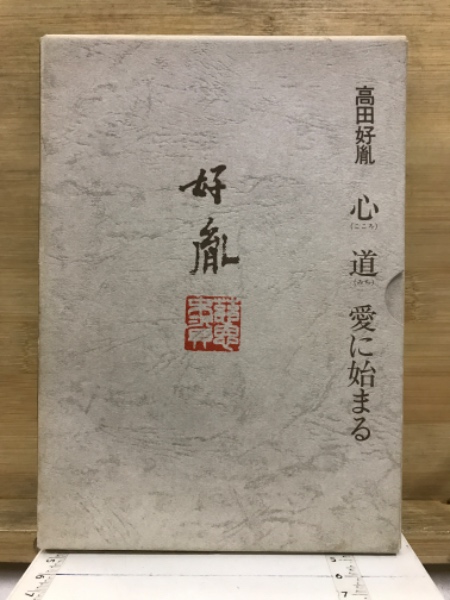 高田好胤 心 道 愛に始まる
(こころ)
(みち)
好胤